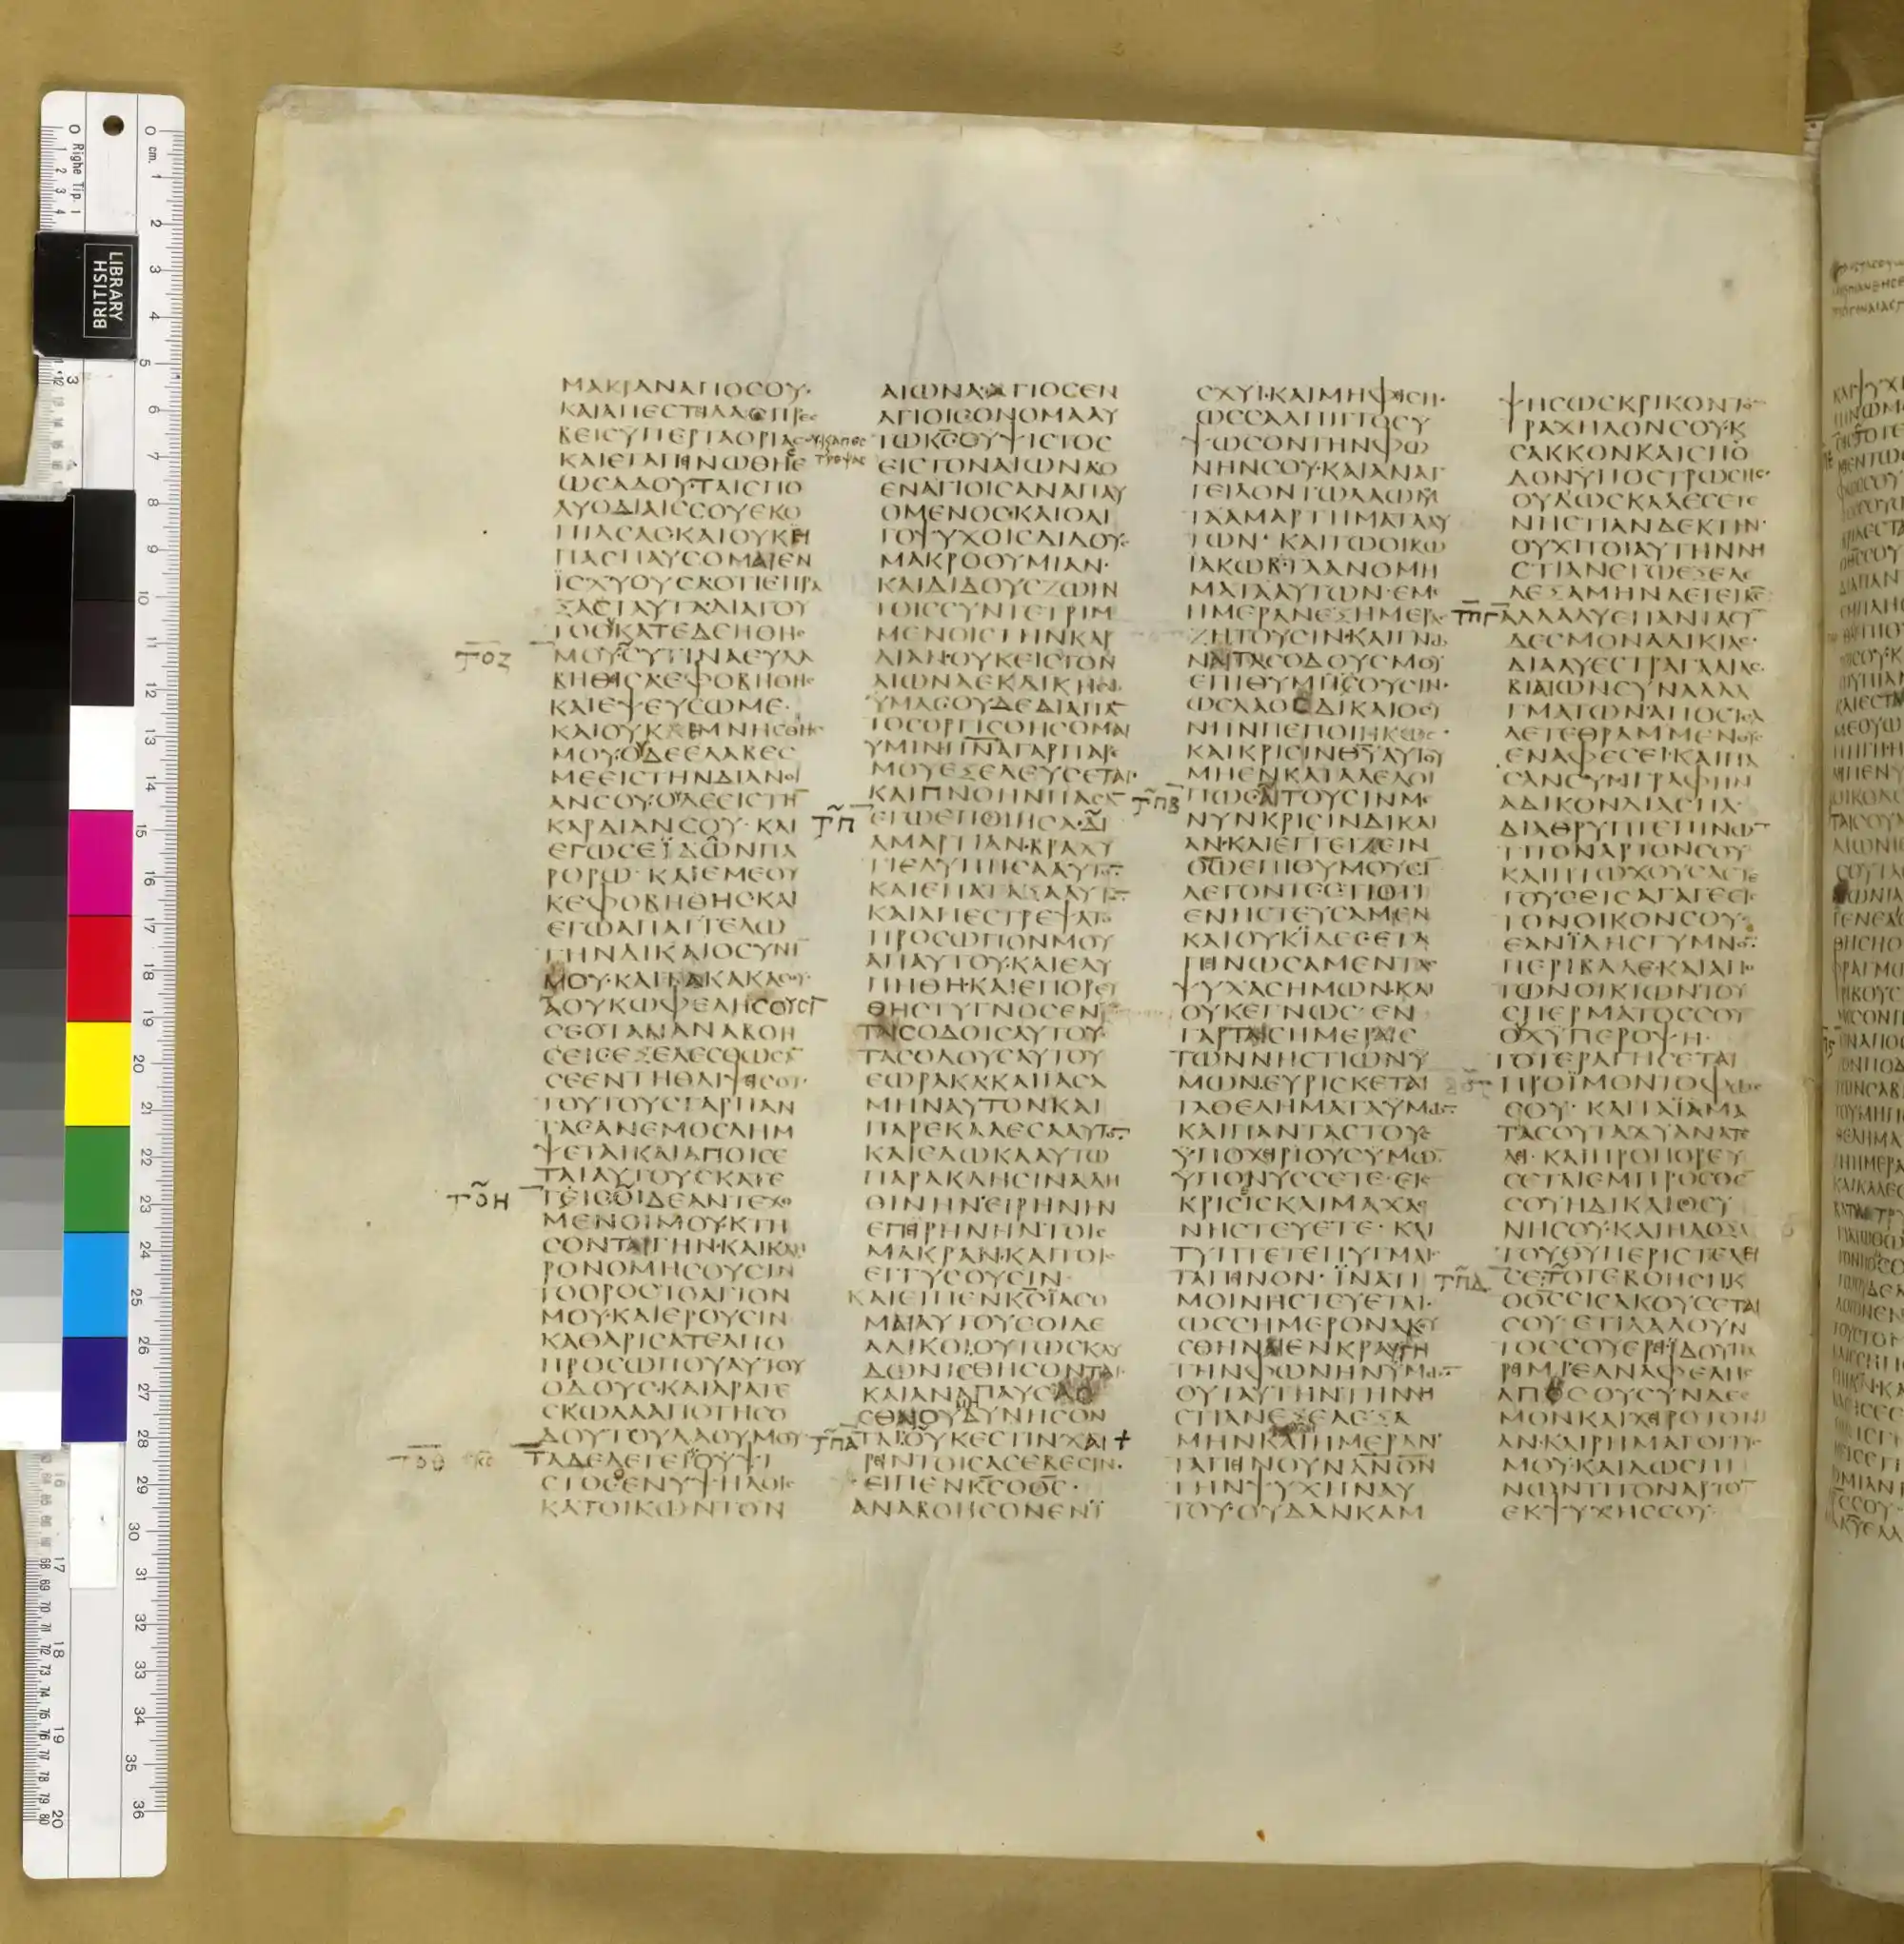 ΜΑΚΡΑΝΑΠΟCΟΥ·
ΚΑΙΑΠΕCΤΙΛΑCΠΡΕC
ΒΕΙCΥΠΕΡΤΑΟΡΙΑC
ΚΑΙΕΤΑΠΙΝΩΘΗΕ
ΩCΑΔΟΥ·ΤΑΙCΠΟ
ΛΥΟΔΙΑΙCCΟΥΕΚΟ
ΠΙΑCΑCΚΑΙΟΥΚΕΙ
ΠΑCΠΑΥCΟΜΑΙΕΝ
ΪCΧΥΟΥCΑΟΤΙΕΠΡΑ
ΞΑCΤΑΥΤΑΔΙΑΤΟΥ
ΤΟΟΥΚΑΤΕΔΕΗΘΗC
ΤΟΖ
ΜΟΥCΥΤΙΝΑΕΥΛΑ
ΒΗΘΙCΑΕΦΟΒΗΘΗC
ΚΑΙΕΨΕΥCΩΜΕ·
ΚΑΙΟΥΚΕΜΝΗCΘΗC
ΜΟΥ·ΟΥΔΕΕΛΑΒΕC
ΜΕΕΙCΤΗΝΔΙΑΝΟΙ
ΑΝCΟΥ·ΟΥΔΕΕΙCΤΗ
ΚΑΡΔΙΑΝCΟΥ· ΚΑΙ
ΕΓΩCΕΪΔΩΝΠΑ
ΡΟΡΩ· ΚΑΙΕΜΕΟΥ
ΚΕΦΟΒΗΘΗCΚΑΙ
ΕΓΩΑΠΑΓΓΕΛΩ
ΤΗΝΔΙΚΑΙΟCΥΝΗ
ΜΟΥ·ΚΑΙΤΑΚΑΚΑCΟΥ·
ΑΟΥΚΩΦΕΛΗCΟΥCΙ
CΕΟΤΑΝΑΝΑΒΟΗ
CΕΙCΕΞΕΛΕCΘΩCΑ
CΕΕΝΤΗΘΛΙΨΙCΟΥ·
ΤΟΥΤΟΥCΓΑΡΠΑΝ
ΤΑCΑΝΕΜΟCΛΗΜ
ΨΕΤΑΙΚΑΙΑΠΟΙCΕ
ΤΑΙΑΥΤΟΥCΚΑΤΕ
ΤΟΗ
ΓΕΙCΟΙΔΕΑΝΤΕΧΟ
ΜΕΝΟΙΜΟΥ·ΚΤΗ
CΟΝΤΑΙΓΗΝ·ΚΑΙΚΛΗ
ΡΟΝΟΜΗCΟΥCΙΝ
ΤΟΟΡΟCΤΟΑΓΙΟΝ
ΜΟΥ·ΚΑΙΕΡΟΥCΙΝ
ΚΑΘΑΡΙCΑΤΕΑΠΟ
ΠΡΟCΩΠΟΥΑΥΤΟΥ
ΟΔΟΥC·ΚΑΙΑΡΑΤΕ
CΚΩΛΑΑΠΟΤΗCΟ
ΔΟΥΤΟΥΛΑΟΥΜΟΥ·
ΤΟΘ
ΤΑΔΕΛΕΓΕΙΟΥΨΙ
CΤΟCΕΝΥΨΗΛΟΙC
ΚΑΤΟΙΚΩΝΤΟΝ
ΑΙΩΝΑ·ΑΓΙΟCΕΝ
ΑΓΙΟΙCΟΝΟΜΑΑΥ
ΤΩΚCΟΥΨΙCΤΟC
ΕΙCΤΟΝΑΙΩΝΑΟ
ΕΝΑΓΙΟΙCΑΝΑΠΑΥ
ΟΜΕΝΟC·ΚΑΙΟΛΙ
ΓΟΨΥΧΟΙCΔΙΔΟΥC
ΜΑΚΡΟΘΥΜΙΑΝ·
ΚΑΙΔΙΔΟΥCΖΩΗΝ
ΤΟΙCCΥΝΤΕΤΡΙΜ
ΜΕΝΟΙCΤΗΝΚΑΡ
ΔΙΑΝ·ΟΥΚΕΙCΤΟΝ
ΑΙΩΝΑΕΚΔΙΚΗCΩ
ΫΜΑCΟΥΔΕΔΙΑΠΑ
ΤΟCΟΡΓΙCΘΗCΟΜΑΙ
ΥΜΙΝ·ΠΝΑΓΑΡΠΑΡΕ
ΜΟΥΕΞΕΛΕΥCΕΤΑΙ·
ΚΑΙΠΝΟΗΝΠΑCΑ
ΤΠ
ΕΓΩΕΠΟΙΗCΑ·ΔΙ
ΑΜΑΡΤΙΑΝ·ΒΡΑΧΥ
ΤΙΕΛΥΠΗCΑΑΥΤΟ
ΚΑΙΕΠΑΤΑΞΑΑΥΤΟ
ΚΑΙΑΠΕCΤΡΕΨΑΤΟ
ΠΡΟCΩΠΟΝΜΟΥ
ΑΠΑΥΤΟΥ·ΚΑΙΕΛΥ
ΠΗΘΗ·ΚΑΙΕΠΟΡΕΥ
ΘΗCΤΥΓΝΟCΕΝ
ΤΑΙCΟΔΟΙCΑΥΤΟΥ·
ΤΑCΟΔΟΥCΑΥΤΟΥ
ΕΩΡΑΚΑΚΑΙΙΑCΑ
ΜΗΝΑΥΤΟΝΚΑΙ
ΠΑΡΕΚΑΛΕCΑΑΥΤΟ
ΚΑΙΕΔΩΚΑΑΥΤΩ
ΠΑΡΑΚΛΗCΙΝΑΛΗ
ΘΙΝΗΝΕΙΡΗΝΗΝ
ΕΠΙΡΗΝΗΝΤΟΙC
ΜΑΚΡΑΝ·ΚΑΙΤΟΙC
ΕΓΓΥCΟΥCΙΝ
ΚΑΙΕΙΠΕΝΚCΪΑCΟ
ΜΑΙΑΥΤΟΥCΟΙΔΕ
ΑΔΙΚΟΙΟΥΤΩCΚΛΥ
ΔΩΝΙCΘΗCΟΝΤΑΙ
ΚΑΙΑΝΑΠΑΥCΑC
CΘΑΙΟΥΔΥΝΗCΟΝ
ΤΠΑ
ΤΑΙΟΥΚΕCΤΙΝΧΑΙ
ΡΙΝΤΟΙCΑCΕΒΕCΙΝ·
ΕΙΠΕΝΚCΟΘC·
ΑΝΑΒΟΗCΟΝΕΝΪ
CΧΥΪ·ΚΑΙΜΗΦΙCΗ·
ΩCCΑΛΠΙΓΓΟCΥ
ΨΩCΟΝΤΗΝΦΩ
ΝΗΝCΟΥ·ΚΑΙΑΝΑΓ
ΓΕΙΛΟΝΤΩΛΑΩΜΟΥ
ΤΑΑΜΑΡΤΗΜΑΤΑΑΥ
ΤΩΝ· ΚΑΙΤΩΟΙΚΩ
ΪΑΚΩΒ·ΤΑΑΝΟΜΗ
ΜΑΤΑΑΥΤΩΝ·ΕΜΕ
ΗΜΕΡΑΝΕΞΗΜΕΡΑC
ΖΗΤΟΥCΙΝ·ΚΑΙΓΝΩ
ΝΑΙΤΑCΟΔΟΥCΜΟΥ
ΕΠΙΘΥΜΗCΟΥCΙΝ·
ΩCΛΑΟCΔΙΚΑΙΟCΥ
ΝΗΝΠΕΠΟΙΗΚΩC·
ΚΑΙΚΡΙCΙΝΘΥΑΥΤΟΥ
ΜΗΕΝΚΑΤΑΛΕΛΟΙ
ΤΠΒ
ΠΩCΑΙΤΟΥCΙΝΜΕ
ΝΥΝΚΡΙCΙΝΔΙΚΑΙ
ΑΝ·ΚΑΙΕΓΓΕΙΖΕΙΝ
ΘΩΕΠΙΘΥΜΟΥCΙ
ΛΕΓΟΝΤΕC·ΤΙΟΤΙ
ΕΝΗCΤΕΥCΑΜΕΝ
ΚΑΙΟΥΚΪΔΕCΕΤΑ
ΠΙΝΩCΑΜΕΝΤΑC
ΨΥΧΑCΗΜΩΝΚΑΙ
ΟΥΚΕΓΝΩC· ΕΝ
ΓΑΡΤΑΙCΗΜΕΡΑΙC
ΤΩΝΝΗCΤΙΩΝΥ
ΜΩΝΕΥΡΙCΚΕΤΑΙ
ΤΑΘΕΛΗΜΑΤΑΫΜΩ
ΚΑΙΠΑΝΤΑCΤΟΥC
ΫΠΟΧΙΡΙΟΥCΥΜΩ
ΥΠΟΝΥCCΕΤΕ·ΕΙC
ΚΡΙCΙCΚΑΙΜΑΧΑC
ΝΗCΤΕΥΕΤΕ· ΚΑΙ
ΤΥΠΤΕΤΕΠΥΓΜΑΙC
ΤΑΠΙΝΟΝ· ΪΝΑΤΙ
ΜΟΙΝΗCΤΕΥΕΤΑΙ·
ΩCCΗΜΕΡΟΝΑΚΟΥ
CΘΗΝΑΙΕΝΚΡΑΥΓΗ
ΤΗΝΦΩΝΗΝΫΜΩ
ΟΥΤΑΥΤΗΝΤΗΝΝΗ
CΤΙΑΝΕΞΕΛΕΞΑ
ΜΗΝΚΑΙΗΜΕΡΑΝ
ΤΑΠΙΝΟΥΝΑΝΟΝ
ΤΗΝΨΥΧΗΝΑΥ
ΤΟΥ·ΟΥΔΑΝΚΑΜ
ΨΗCΩCΚΡΙΚΟΝΤΟ
ΤΡΑΧΗΛΟΝCΟΥ·Κ
CΑΚΚΟΝΚΑΙCΠΟ
ΔΟΝΫΠΟCΤΡΩCΗC·
ΟΥΔΩCΚΑΛΕCΕΤΕ
ΝΗCΤΙΑΝΔΕΚΤΗΝ·
ΟΥΧΙΤΟΙΑΥΤΗΝΝΗ
CΤΙΑΝΕΓΩΕΞΕΛΕ
ΛΕΞΑΜΗΝΛΕΓΕΙΚC
ΤΠΓ
ΑΛΛΑΛΥΕΠΑΝΤΑCΥ
ΔΕCΜΟΝΑΔΙΚΙΑC·
ΔΙΑΛΥΕCΤΡΑΓΓΑΛΙΑC
ΒΙΑΙΩΝCΥΝΑΛΛΑ
ΓΜΑΤΩΝ·ΑΠΟCΤΕΛ
ΛΕΤΕΘΡΑΜΜΕΝΟΥC
ΕΝΑΦΕCΕΙ·ΚΑΙΠΑ
CΑΝCΥΝΓΡΑΦΗΝ
ΑΔΙΚΟΝΔΙΑCΠΑ·
ΔΙΑΘΡΥΠΤΕΠΙΝΩΤΙ
ΤΟΝΑΡΤΟΝCΟΥ
ΚΑΙΠΤΩΧΟΥCΑCΤΕ
ΓΟΥCΕΙCΑΓΑΓΕΕΙC
ΤΟΝΟΙΚΟΝCΟΥ·
ΕΑΝΪΔΗCΓΥΜΝΟ·
ΠΕΡΙΒΑΛΕ·ΚΑΙΑΠΟ
ΤΩΝΟΙΚΙΩΝΤΟΥ
CΠΕΡΜΑΤΟCCΟΥ
ΟΥΧΥΠΕΡΟΨΗ·
ΤΟΤΕΡΑΓΗCΕΤΑΙ
ΠΡΟΪΜΟΝΤΟΦΩC
CΟΥ· ΚΑΙΤΑΪΑΜΑ
ΤΑCΟΥΤΑΧΥΑΝΑΤΕ
ΛΙ· ΚΑΙΠΡΟΠΟΡΕΥ
CΕΤΑΙΕΜΠΡΟCΘΕ
CΟΥΗΔΙΚΑΙΟCΥ
ΝΗCΟΥ·ΚΑΙΗΔΟΞΑ
ΤΟΥΘΥΠΕΡΙCΤΕΛΕΙ
ΤΠΔ
CΕ·ΤΟΤΕΒΟΗCΗΚ
ΟΘCΕΙCΑΚΟΥCΕΤΑΙ
CΟΥ· ΕΤΙΛΑΛΟΥΝ
ΤΟCCΟΥΕΡΙ·ΪΔΟΥΠΑ
ΡΙΜΙ·ΕΑΝΑΦΕΛΗC
ΑΠΟCΟΥCΥΝΔΕC
ΜΟΝΚΑΙΧΙΡΟΤΟΝΙ
ΑΝ·ΚΑΙΡΗΜΑΓΟΓΓΥC
ΜΟΥ·ΚΑΙΔΩCΠΙ
ΝΩΝΤΙΤΟΝΑΡΤΟ
ΕΚΨΥΧΗCCΟΥ·